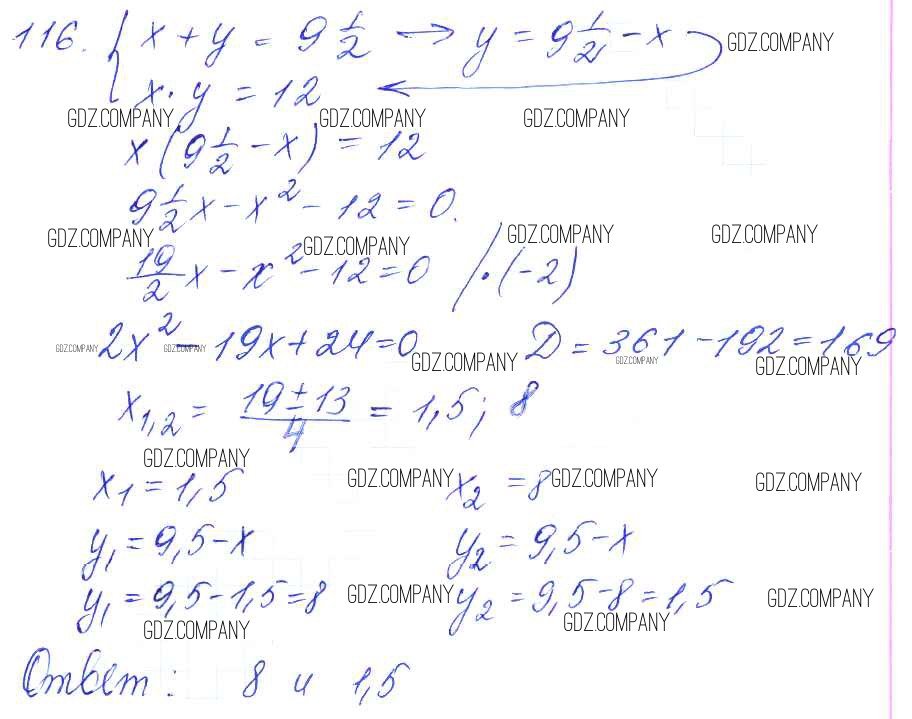 116. { x + y = 9 1/2 → y = 9 1/2 - x GDZ.COMPANY
x · y = 12
GDZ.COMPANY GDZ.COMPANY GDZ.COMPANY
x (9 1/2 - x) = 12
9 1/2 x - x² - 12 = 0.
GDZ.COMPANY GDZ.COMPANY GDZ.COMPANY GDZ.COMPANY
19/2 x - x² - 12 = 0 / · (-2)
GDZ.COMPANY 2x² GDZ.COMPANY - 19x + 24 = 0 GDZ.COMPANY D = 361 - 192 = 169 GDZ.COMPANY GDZ.COMPANY
x1,2 = (19 ± 13)/4 = 1,5; 8
GDZ.COMPANY GDZ.COMPANY GDZ.COMPANY GDZ.COMPANY
x1 = 1,5 x2 = 8
y1 = 9,5 - x y2 = 9,5 - x
y1 = 9,5 - 1,5 = 8 GDZ.COMPANY y2 = 9,5 - 8 = 1,5 GDZ.COMPANY
GDZ.COMPANY GDZ.COMPANY
Ответ: 8 и 1,5